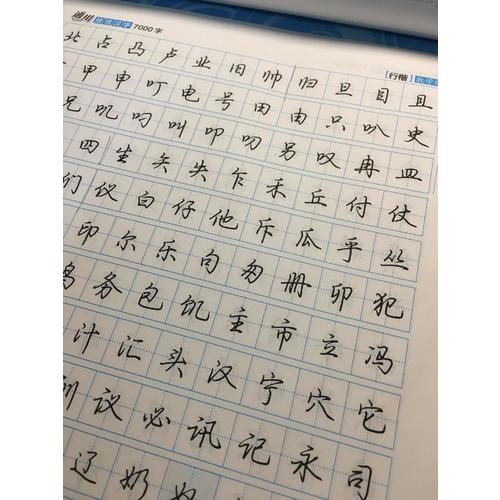 通用规范汉字7000字 [行楷]
北占凸卢业旧帅归旦目且
甲申叮电号田由只叭史
兄叽叼叫叩叨另叹冉皿
四生矢失乍禾丘付仗
们仪白仔他斥瓜乎丛
印尔乐句匆册卯犯
务包饥主市立冯
汁汇头汉宁穴它
议必讯记永司
辽奶